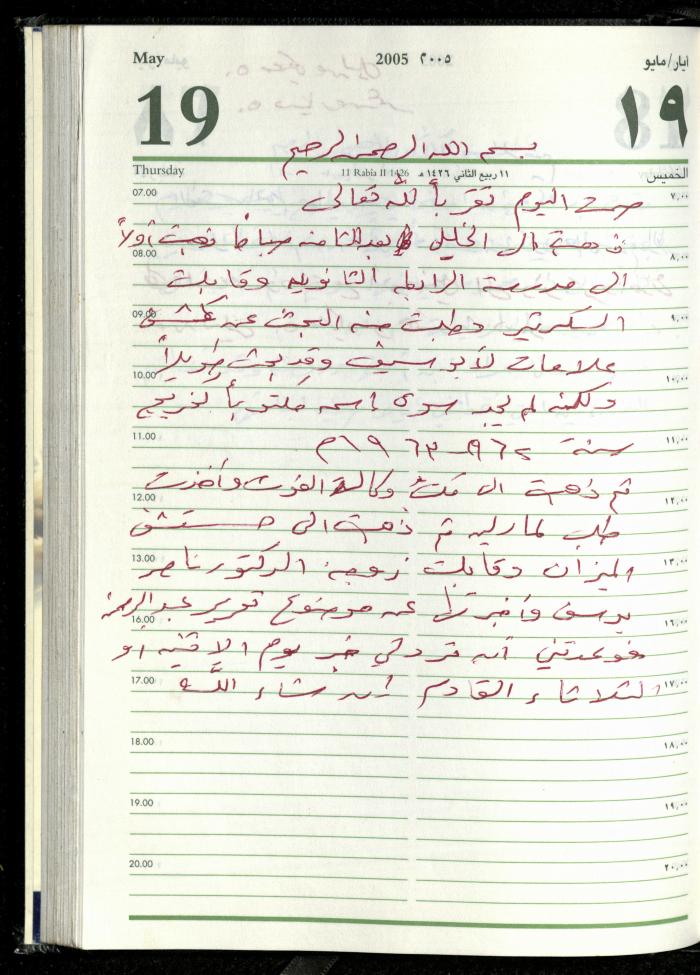 May 2005 ٢٠٠٥ ايار/مايو
19 ١٩
بسم الله الرحمن الرحيم
Thursday 11 Rabia II 1426 ١١ ربيع الثاني ١٤٢٦ هـ الخميس
07.00 صمت اليوم تقرباً لله تعالى ٧,٠٠
ذهبت الى الخليل بعد الثامنه صباحاً ذهبت أولاً
08.00 الى مدرسة الرابطه الثانويه وقابلت ٨,٠٠
09.00 السكرتير وطلبت منه البحث عن كشف ٩,٠٠
علامات لأبو سيف وقد بحث طويلاً
10.00 ولكنه لم يجد سوى إسمه مكتوباً كخريج ١٠,٠٠
11.00 سنة ٩٦٢ - ١٩٦٣م ١١,٠٠
ثم ذهبت الى وكالة الغوث وأخذت
12.00 طلب ثم ذهبت الى مستشفى ١٢,٠٠
13.00 الميزان وقابلت زوجة الدكتور ناصر ١٣,٠٠
يوسف وأخبرتها عن موضوع تقرير عبد الرحمن
16.00 فوعدتني أن ترد لي خبر يوم الاثنين أو ١٦,٠٠
17.00 الثلاثاء القادم إن شاء الله ١٧,٠٠
18.00 ١٨,٠٠
19.00 ١٩,٠٠
20.00 ٢٠,٠٠